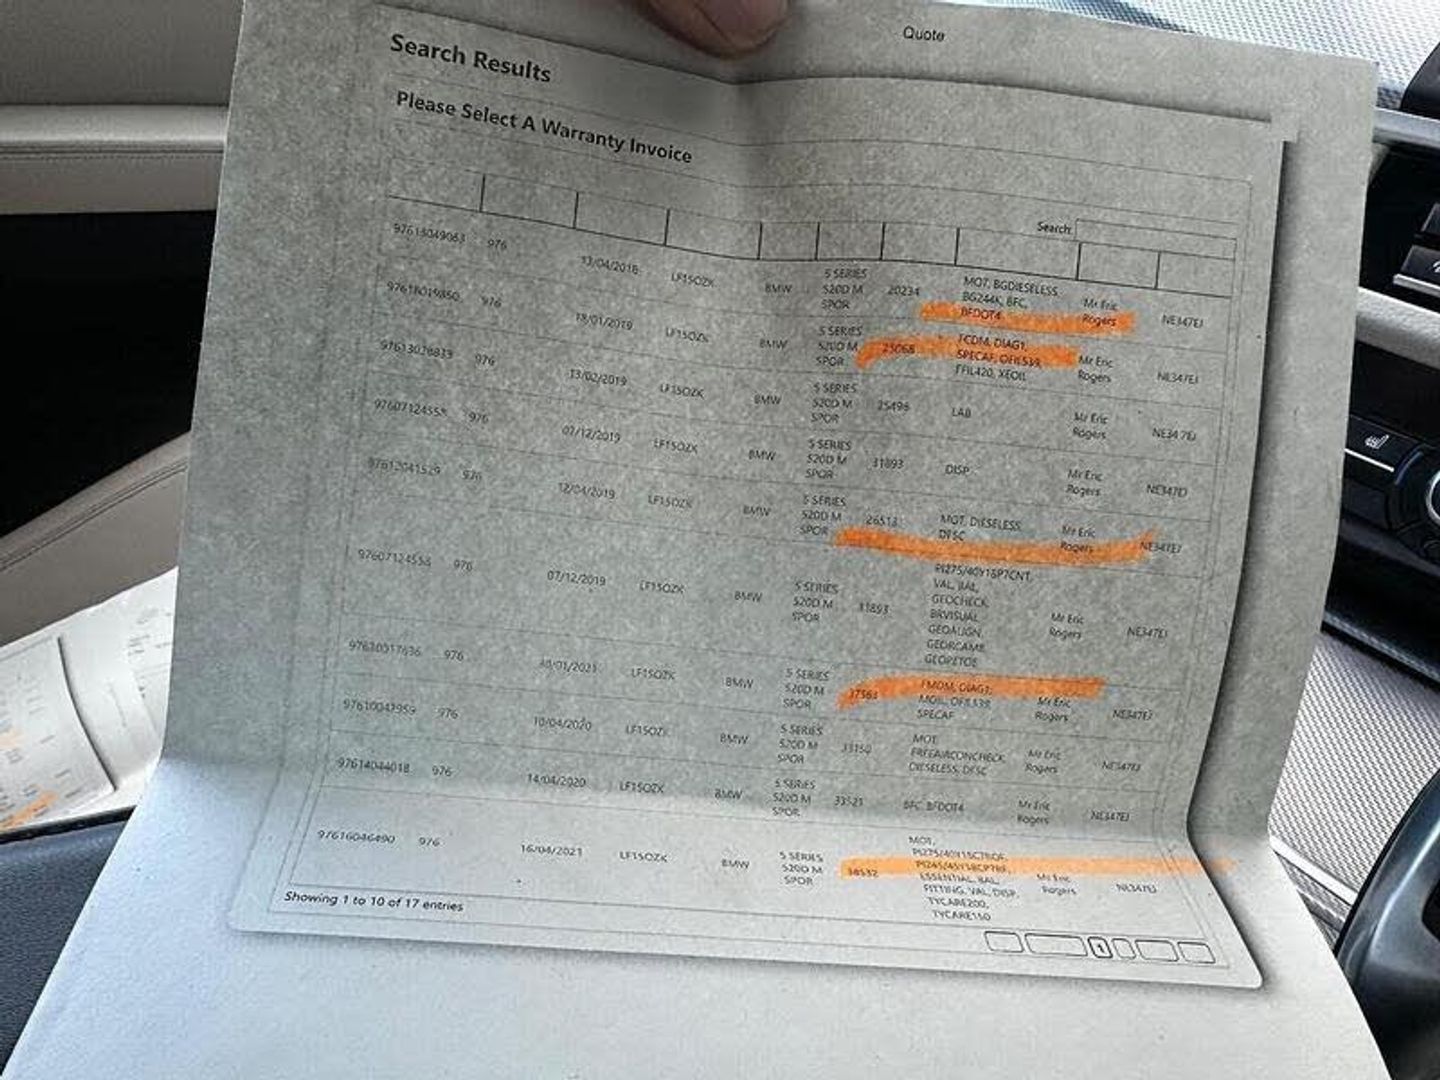 Quote
Search Results
Please Select A Warranty Invoice
Search:
97613049063 976 13/04/2018 LF15OZK BMW 5 SERIES 20234 MOT, BGDIESELESS, Mr Eric NE347EJ
520D M BG244K, BFC, Rogers
SPOR BFDOT4
97618019850 976 18/01/2019 LF15OZK BMW 5 SERIES 25068 FCDM, DIAG1, Mr Eric NE347EJ
520D M SPECAF, OFIL539, Rogers
SPOR FFIL420, XEOIL
976 13/02/2019 LF15OZK BMW 5 SERIES 25496 LAB Mr Eric NE347EJ
520D M Rogers
SPOR
97607124558 976 07/12/2019 LF15OZK BMW 5 SERIES 31893 DISP Mr Eric NE347EJ
520D M Rogers
SPOR
97612041529 976 12/04/2019 LF15OZK BMW 5 SERIES 26513 MOT, DIESELESS, Mr Eric NE347EJ
520D M DFSC Rogers
SPOR
97607124558 976 07/12/2019 LF15OZK BMW 5 SERIES 31893 PI275/40Y18P7CNT, Mr Eric NE347EJ
520D M VAL, BAL, Rogers
SPOR GEOCHECK,
BRVISUAL,
GEOALIGN,
GEORCAMB,
GEORTOE
976 LF15OZK BMW 5 SERIES 37563 FMDM, DIAG1, Mr Eric NE347EJ
520D M MOIL, OFIL539, Rogers
SPOR SPECAF
97610042959 976 10/04/2020 LF15OZK BMW 5 SERIES 33150 MOT, Mr Eric NE347EJ
520D M FREEAIRCONCHECK, Rogers
SPOR DIESELESS, DFSC
97614044018 976 14/04/2020 LF15OZK BMW 5 SERIES 33521 BFC, BFDOT4 Mr Eric NE347EJ
520D M Rogers
SPOR
97616046490 976 16/04/2021 LF15OZK BMW 5 SERIES 38532 MOT, Mr Eric NE347EJ
520D M Rogers
SPOR ESSENTIAL, BAL,
FITTING, VAL, DISP,
TYCARE200,
TYCARE150
Showing 1 to 10 of 17 entries
1